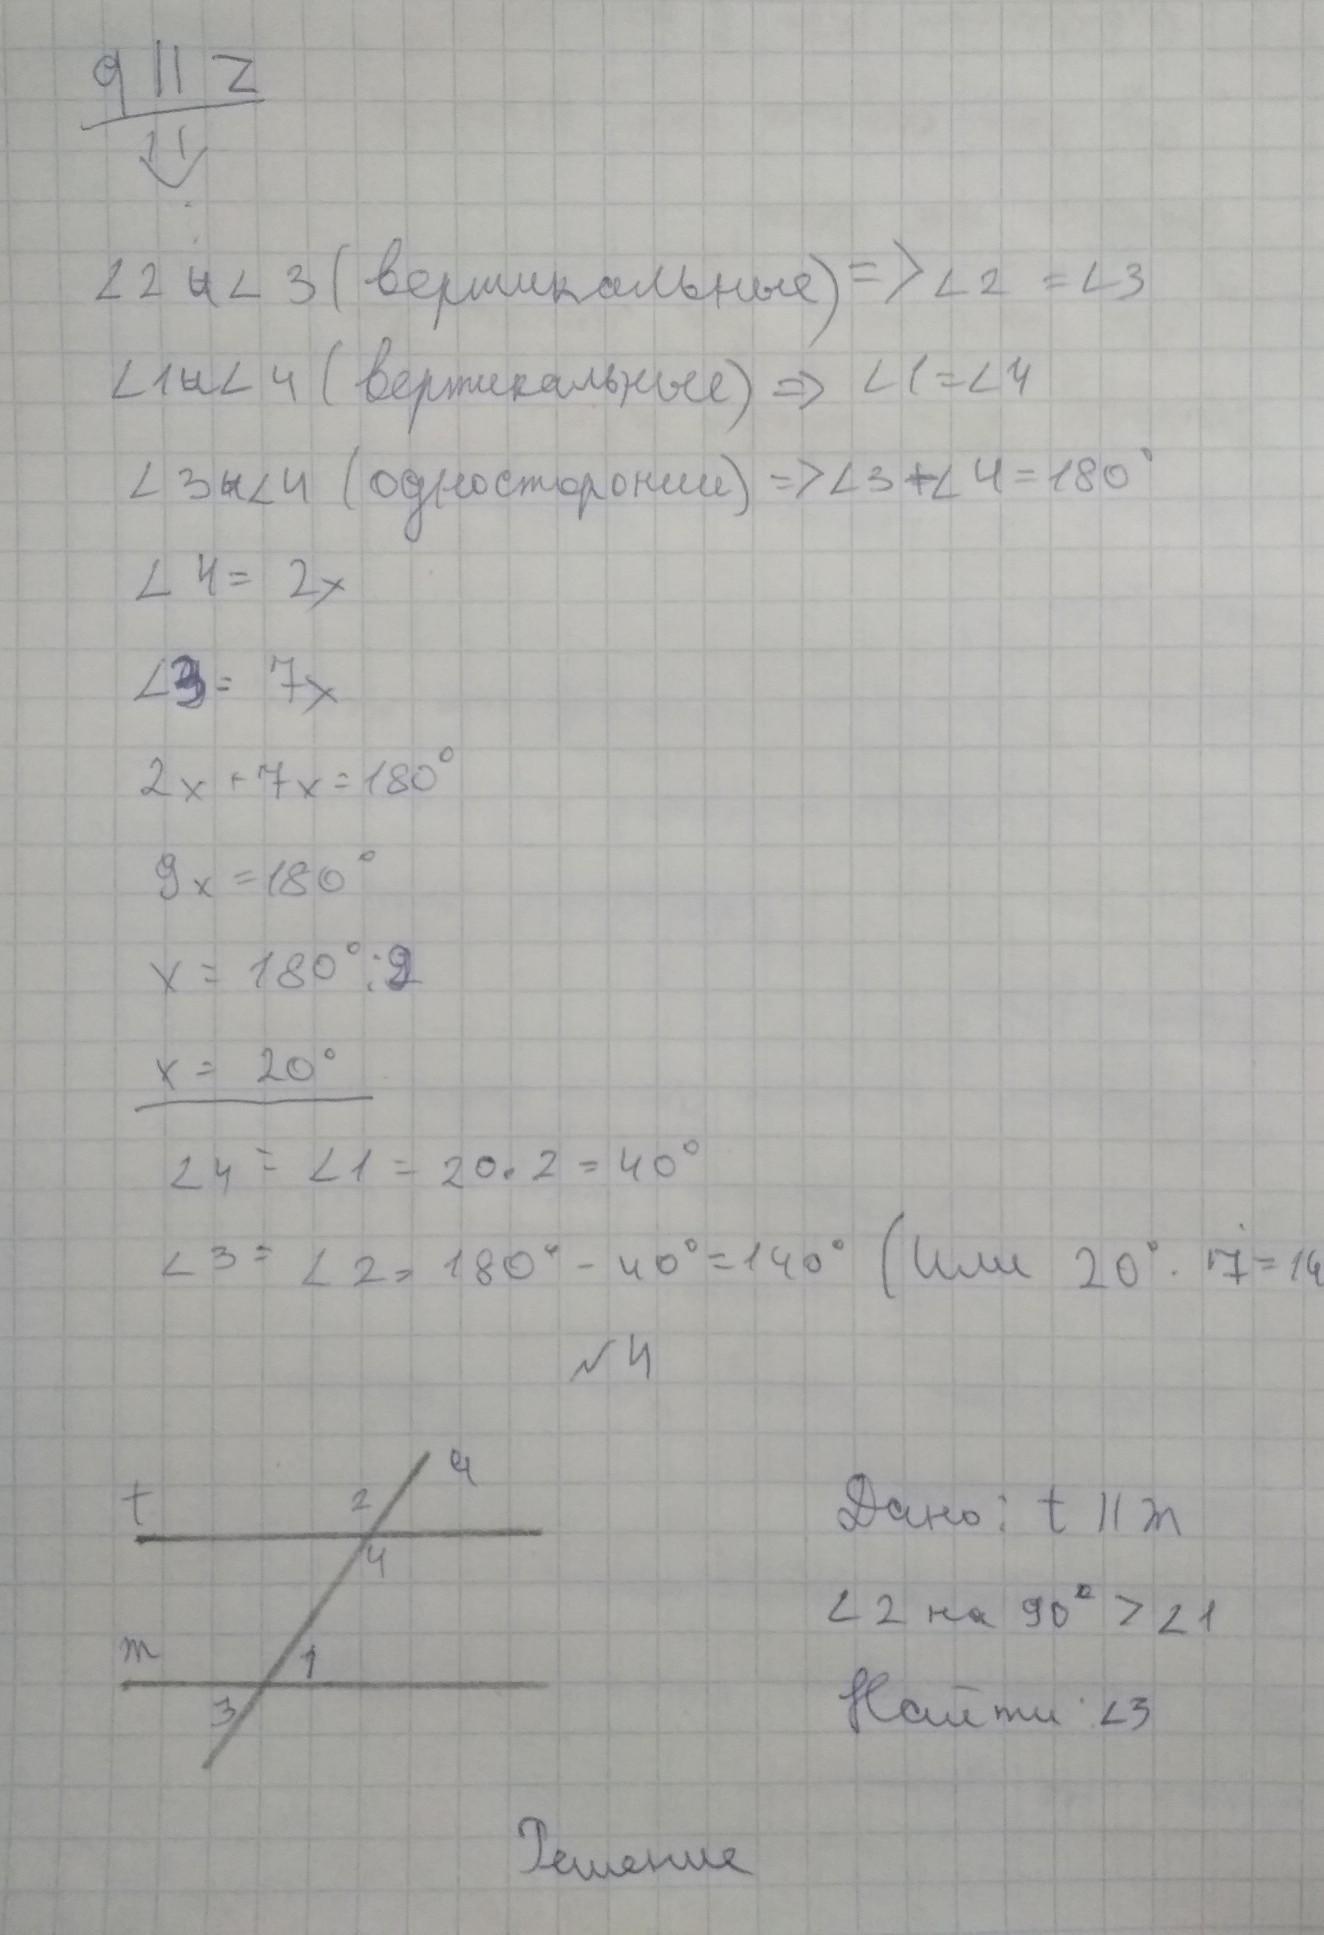 q || z
∠2 и ∠3 (вертикальные) => ∠2 = ∠3
∠1 и ∠4 (вертикальные) => ∠1 = ∠4
∠3 и ∠4 (односторонии) => ∠3 + ∠4 = 180°
∠4 = 2x
∠3 = 7x
2x + 7x = 180°
9x = 180°
x = 180° : 9
x = 20°
∠4 = ∠1 = 20 · 2 = 40°
∠3 = ∠2 = 180° - 40° = 140° (или 20° · 7 = 14
№4
t
2
4
m
1
3
Дано: t || m
∠2 на 90° > ∠1
Найти: ∠3
Решение